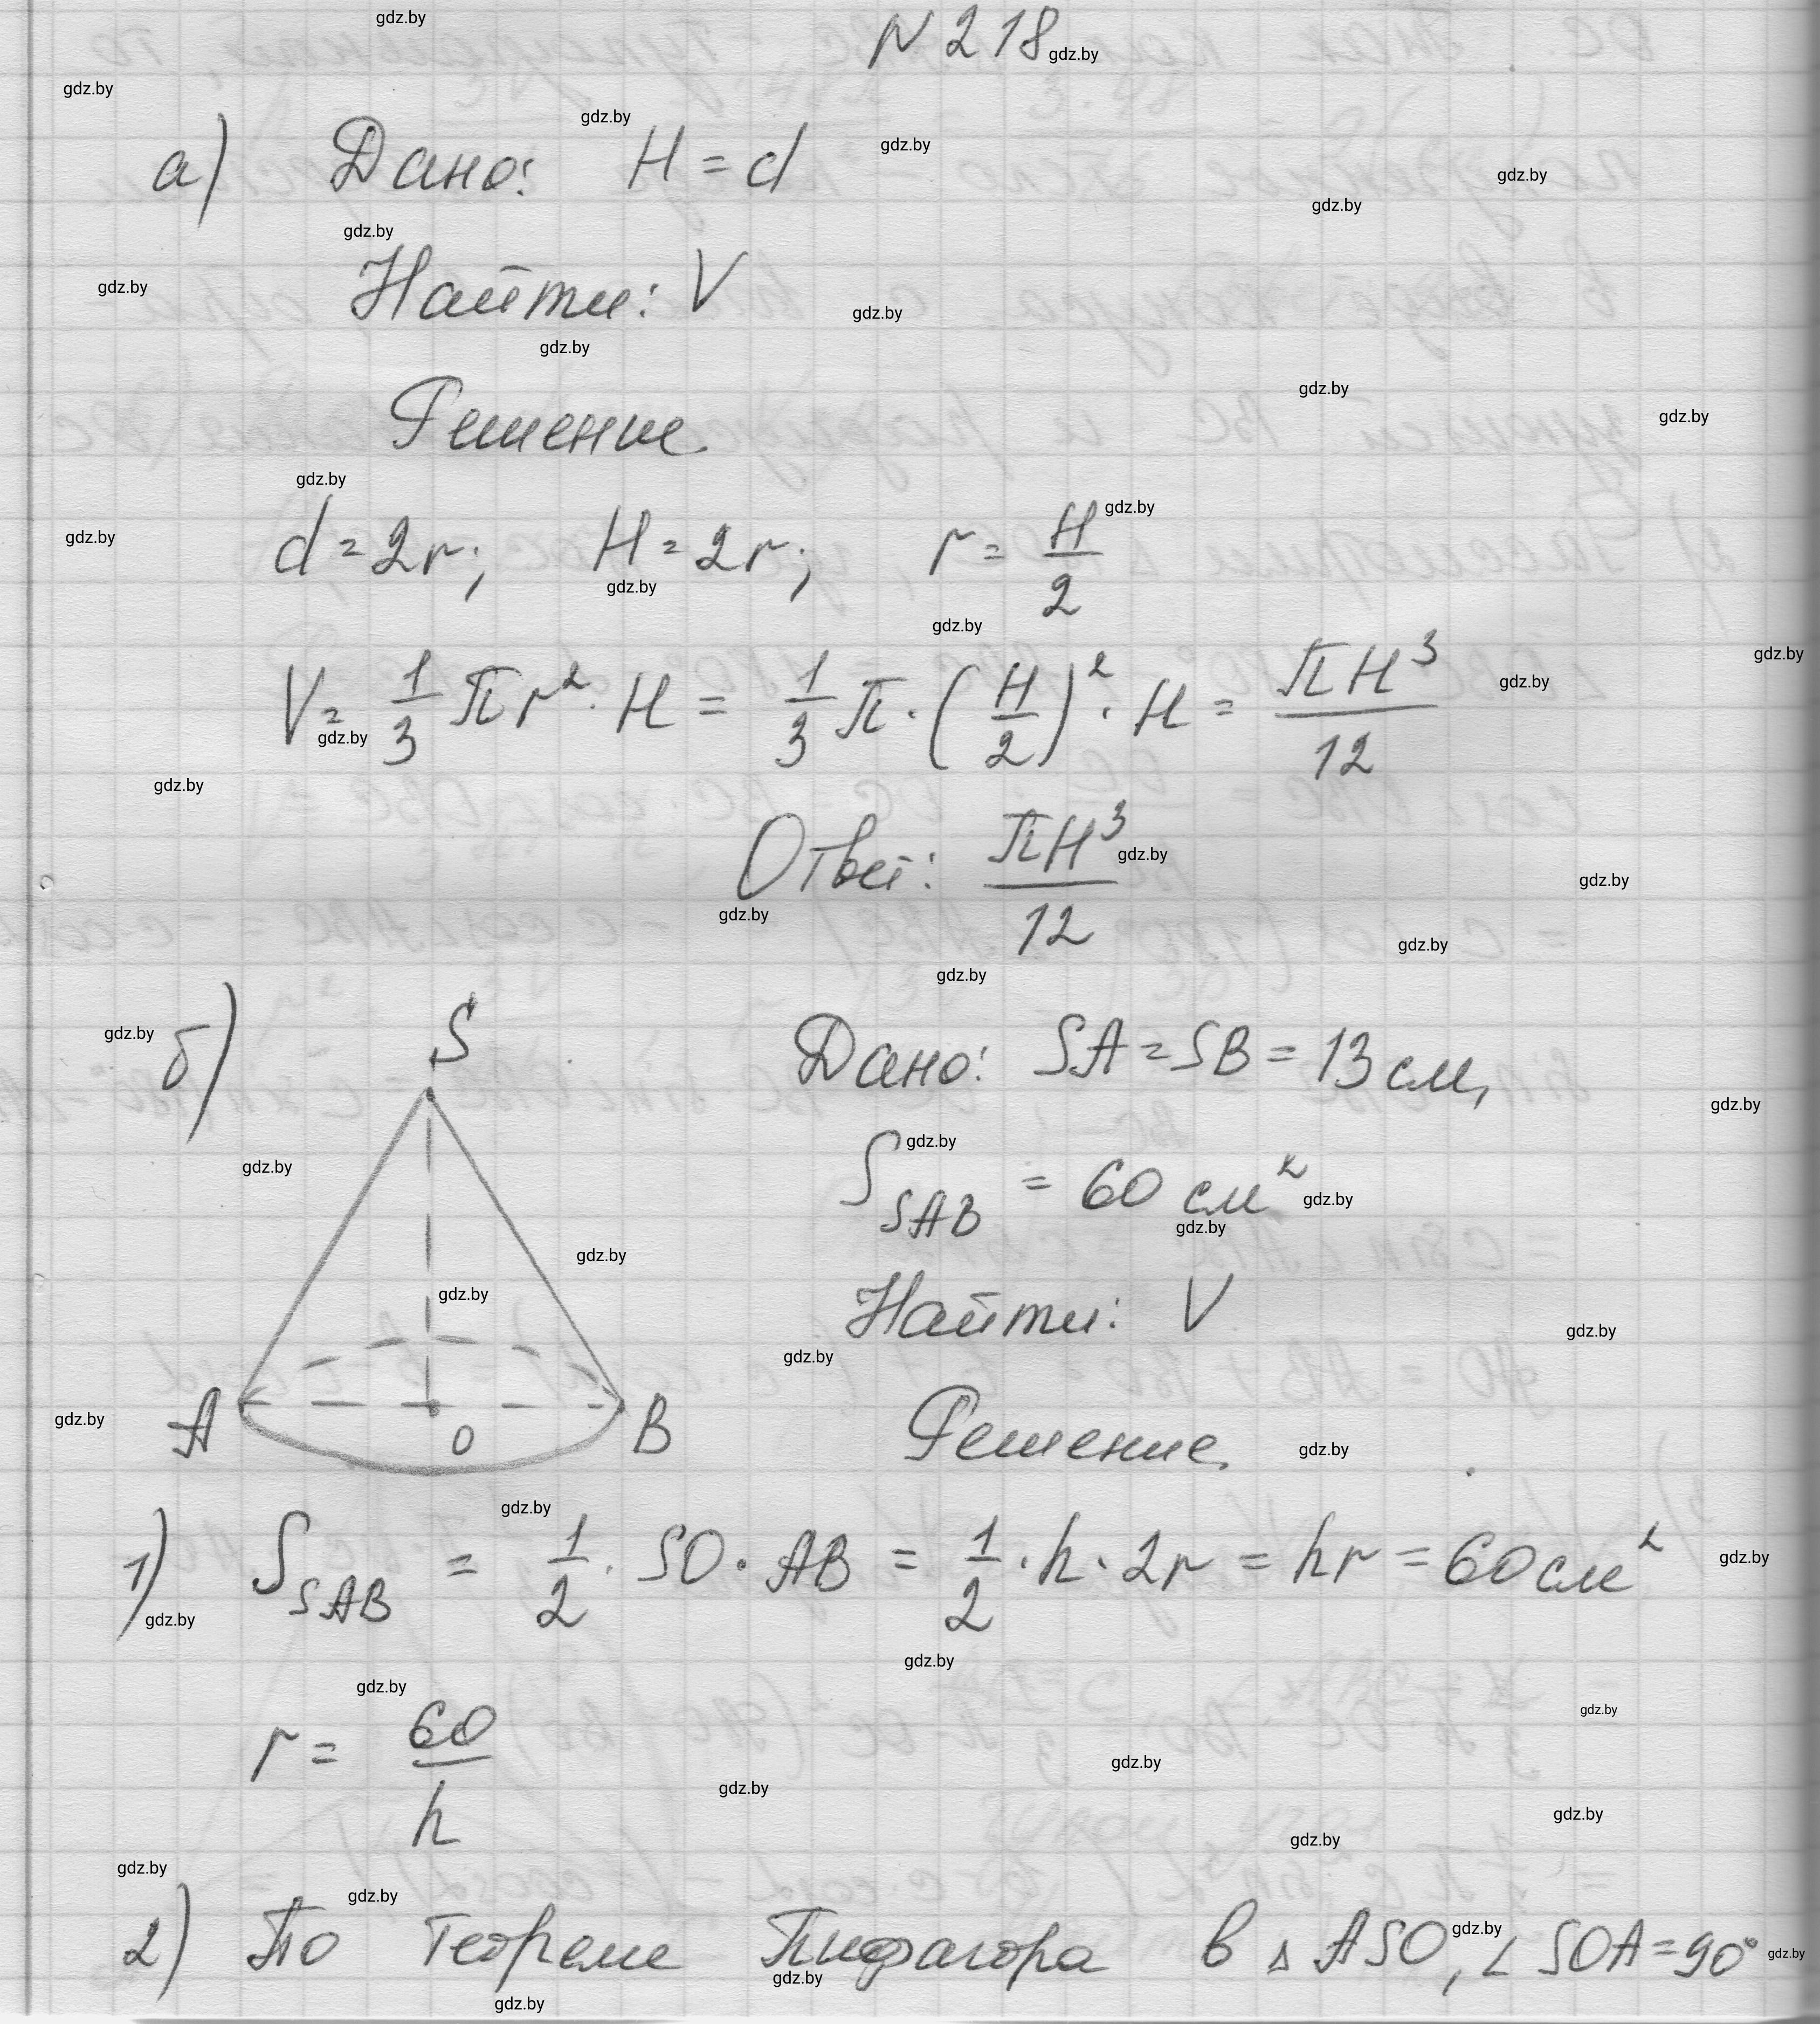 N 218
а) Дано: H = d
Найти: V
Решение
d = 2r; H = 2r; r = H/2
V = 1/3 πr² · H = 1/3 π · (H/2)² · H = πH³/12
Ответ: πH³/12
б) S
A O B
Дано: SA = SB = 13 см,
S_SAB = 60 см²
Найти: V
Решение
1) S_SAB = 1/2 · SO · AB = 1/2 · h · 2r = hr = 60 см²
r = 60/h
2) По теореме Пифагора в △ ASO, ∠ SOA = 90°
gdz.by